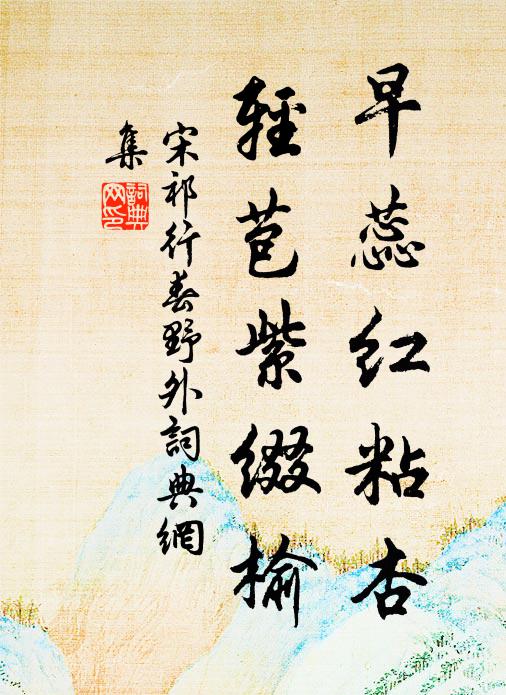 早蕊红粘杏
轻苞紫缀榆
宋祁行春野外詞典網
集
詞典网印